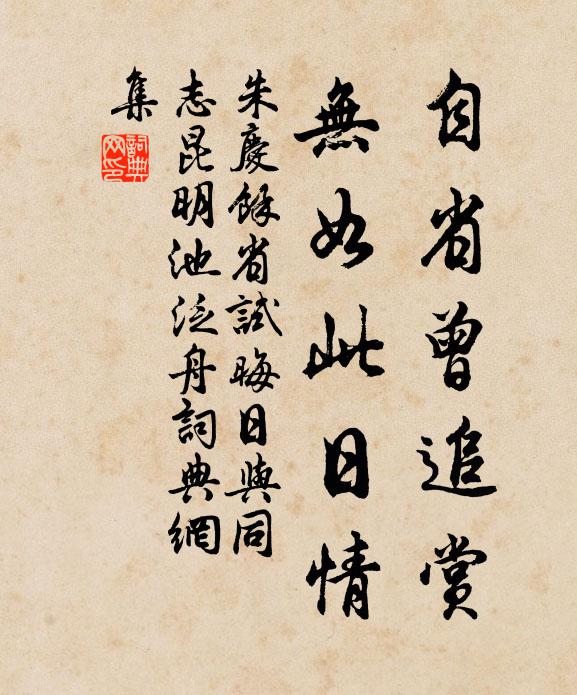 自省曾追賞
無如此日情
朱慶餘省試晦日與同
志昆明池泛舟詞典網
集
詞典网印